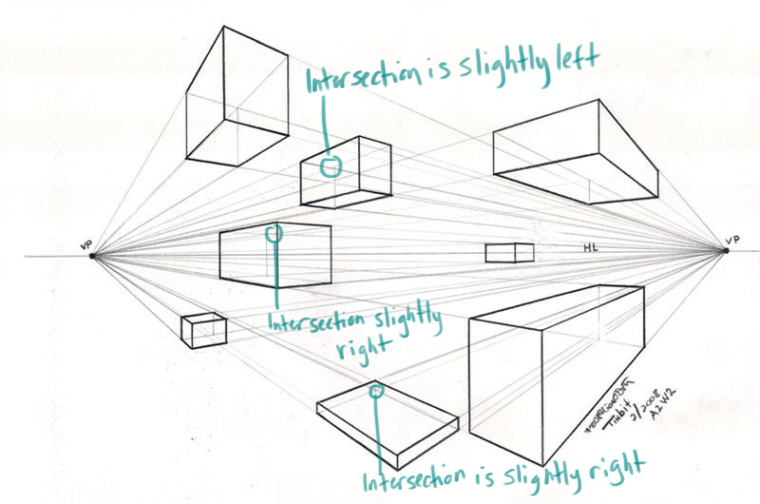 Intersection is slightly left
VP
VP
HL
Intersection slightly
right
2/2008
A2W2
Intersection is slightly right